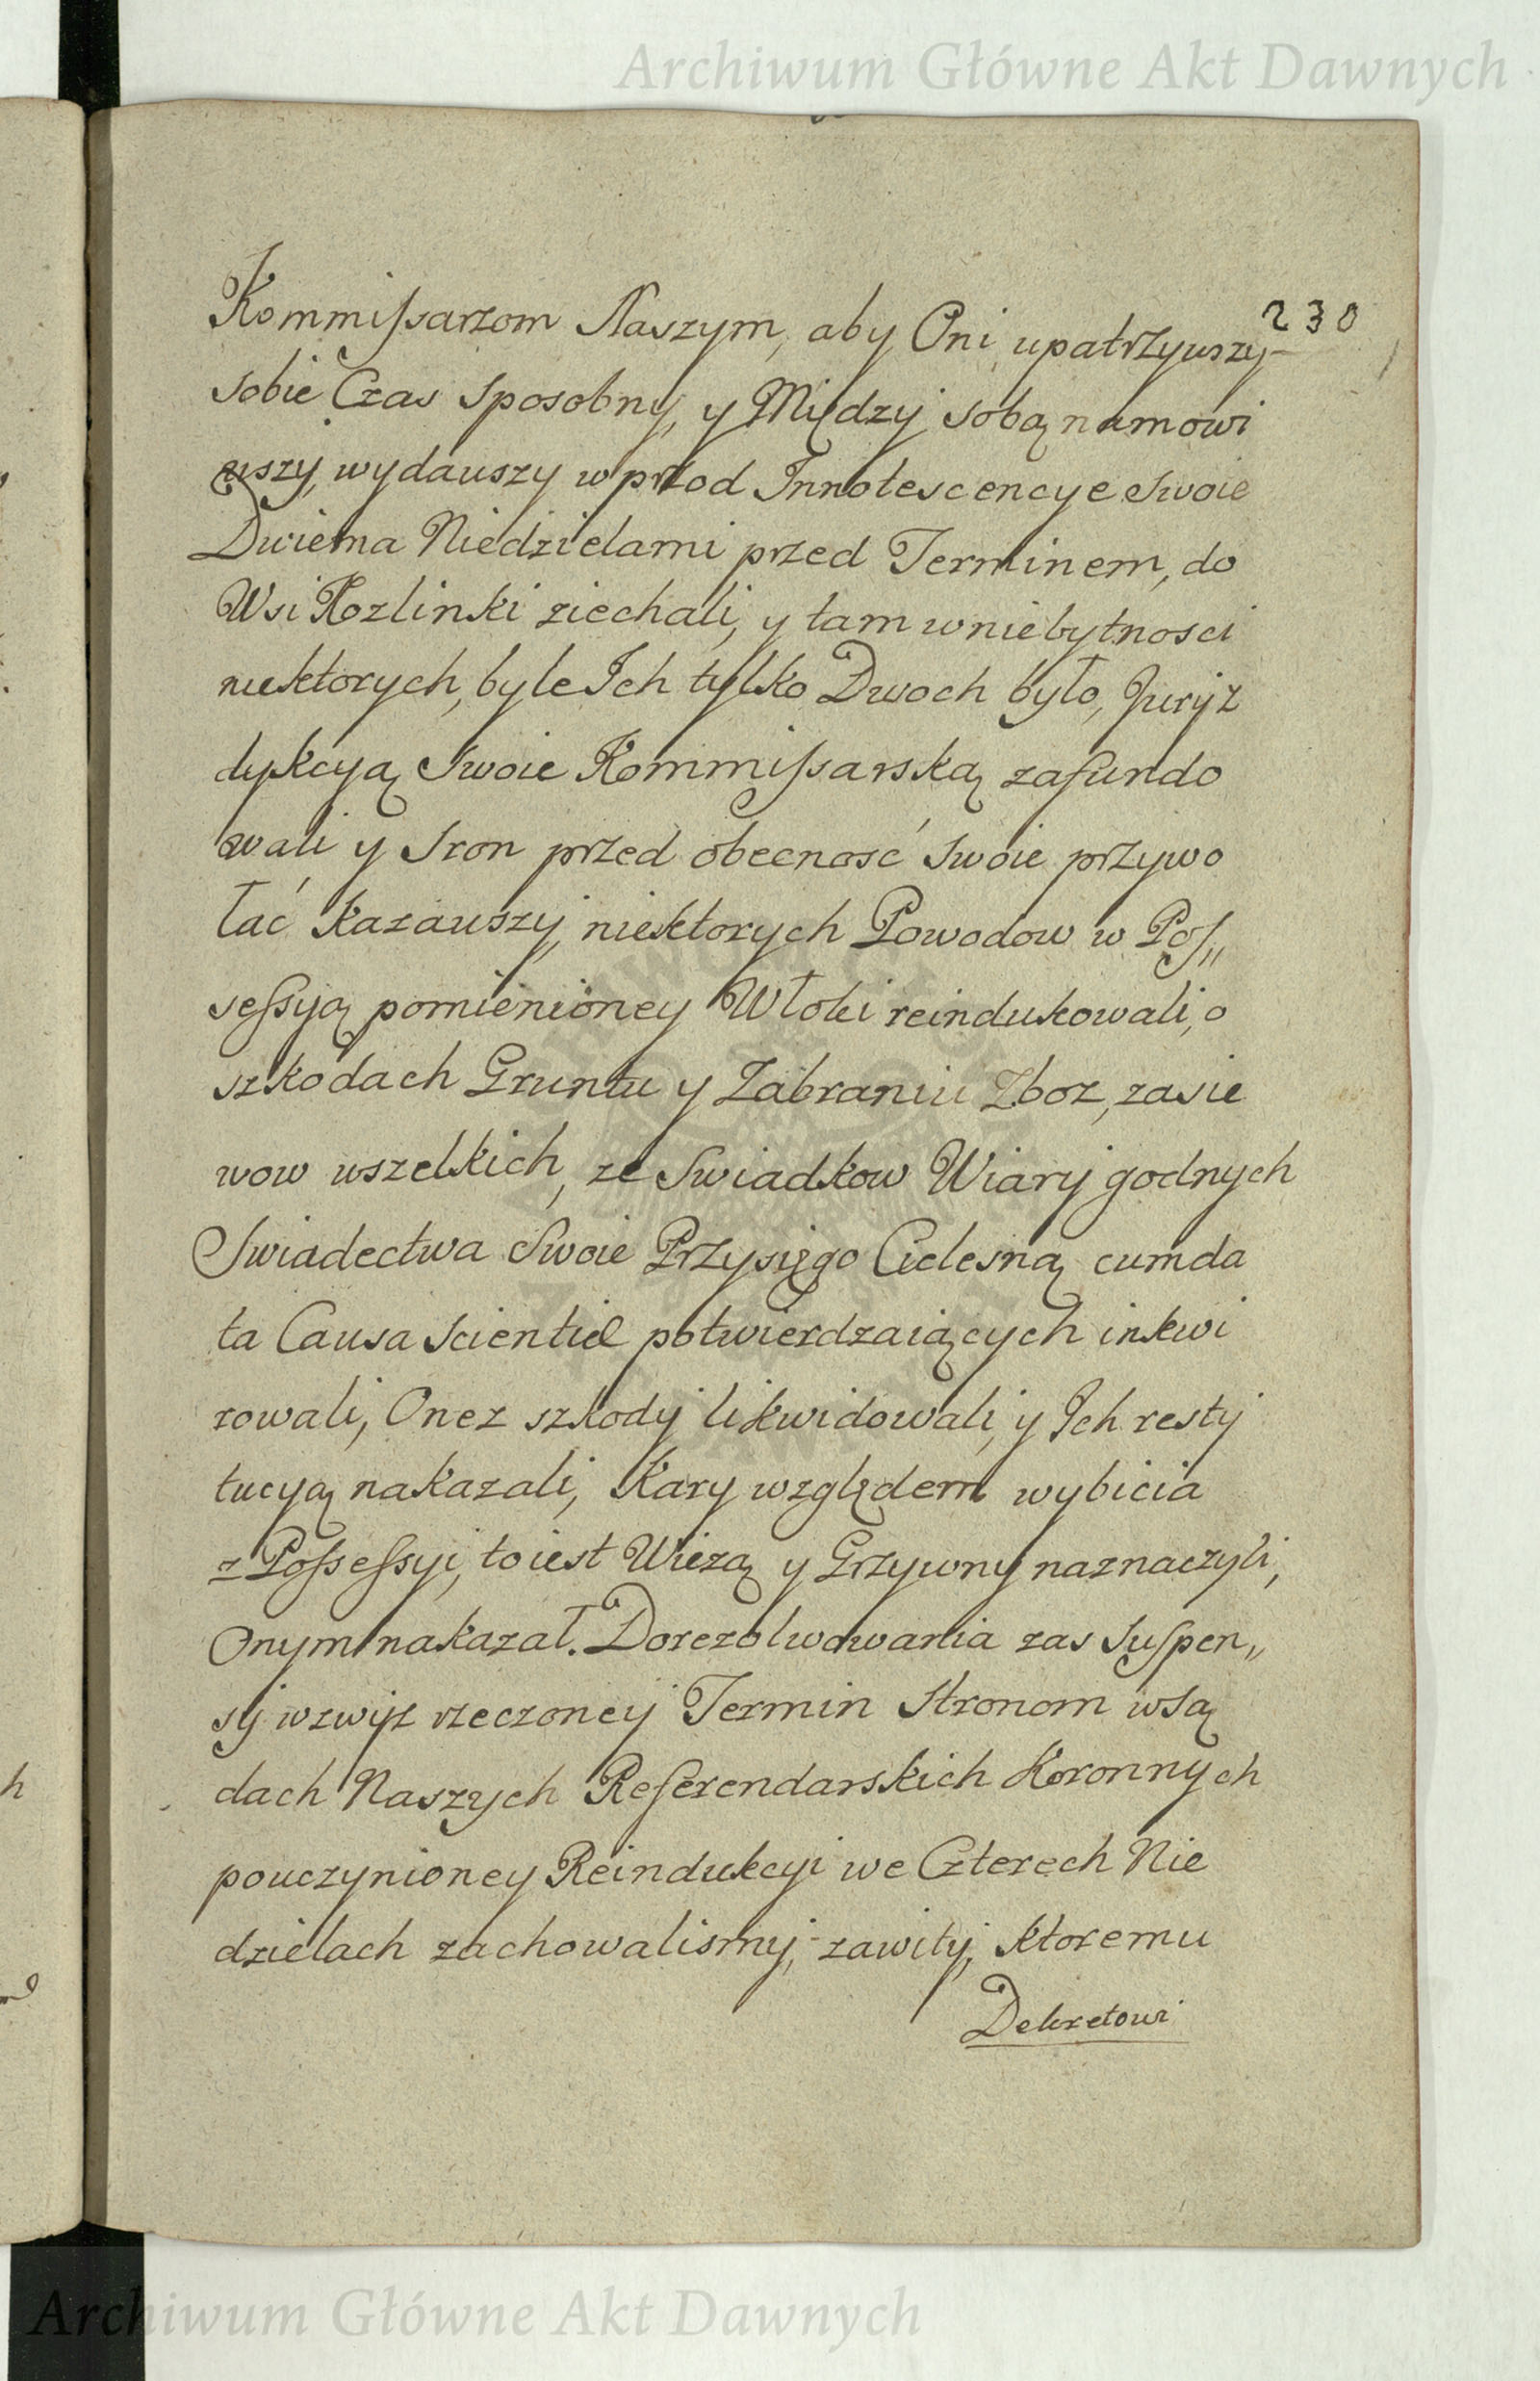 Archiwum Główne Akt Dawnych
230
Kommissarzom Naszym, aby Oni upatrzywszy
sobie Czas sposobny, y Między sobą namowi
wszy, wydawszy w przod Innotescencye swoie
Dwiema Niedzielami przed Terminem, do
Wsi Kozlinki ziechali, y tam w niebytnosci
niektorych, byle Ich tylko Dwoch było, Juryz
dykcyą swoie Kommissarską zafundo
wali y stron przed obecność swoie przywo
łać kazawszy, niektorych Powodow w Pos„
sessyą pomienioney Włoki reindukowali, o
szkodach Gruntu y Zabraniu Zboz, zasie
wow wszelkich, ze Swiadkow Wiary godnych
Swiadectwa swoie Przysięgo Cielesną cum da
ta Causa scientiæ potwierdzaiących inkwi
rowali, Onez szkody likwidowali, y Ich resty
tucyą nakazali, Kary względem wybicia
z Possessyi, to iest Wiezą y Grzywny naznaczyli,
Onym nakazał. Do rezolwowania zas suspen„
sy wzwyz rzeczoney Termin stronom w Są
dach Naszych Referendarskich Koronnych
po uczynioney Reindukcyi we Czterech Nie
dzielach zachowalismy, zawity, ktoremu
Dekretowi
Archiwum Główne Akt Dawnych